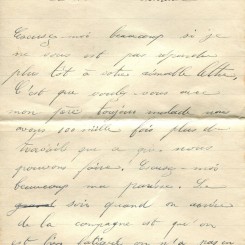 Excusez-moi beaucoup si je
ne vous est pas repondu
plus tôt à votre aimable lettre,
C'est que voulez-vous ma
mon père toujours malade nous
avons 100 mille fois plus de
travail que a qu. nous
pouvons faire. Excusez-moi
beaucoup ma
soir quand on
de la campagne est que on
est bien fatigué on n'a pas